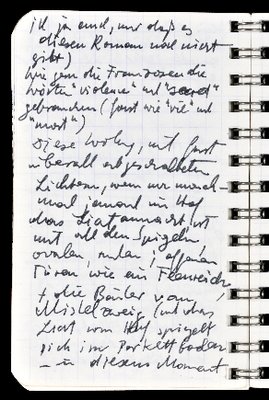 ich ja auch, nur daß es
diesen Roman noch nicht
gibt)
wie gern die Franzosen die
Wörter "violence" und
gebrauchen (fast wie "vie" und
"mort")
Diese Wohng, mit fast
überall abgeschalteten
Lichtern, wenn nur manch-
mal jemand im Hof
das Licht anmacht, ist
mit all den Spiegeln
ovalen, offenen
Türen wie ein
+ die Bäume vom
Mistelzweig (und das
Licht vom Hof spiegelt
sich im Parkettboden
– in diesem Moment